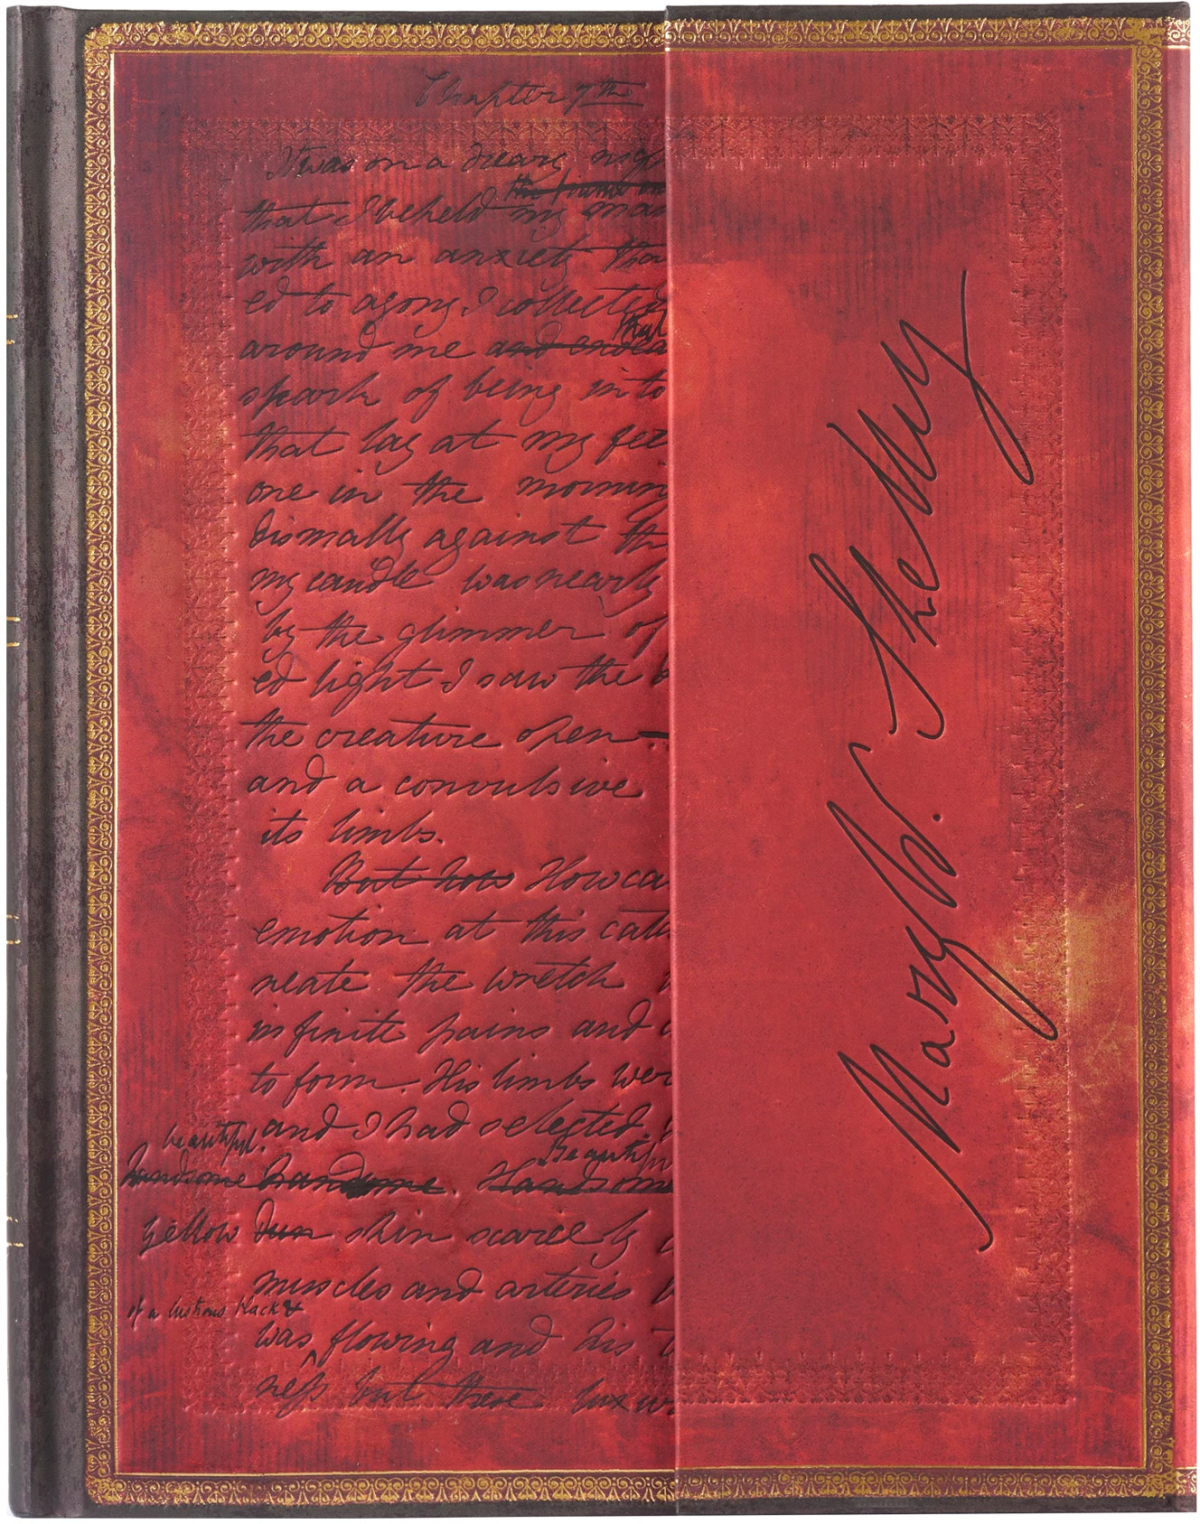 Chapter 7th
It was on a dreary nigh
the frame on
that I beheld my man
with an anxiety that
ed to agony. I collected
that
around me and endea
spark of being into
that lay at my fee
one in the mornin
dismally against th
my candle was nearly
by the glimmer of
ed light I saw the
the creature open
and a convulsive
its limbs.
But how How ca
emotion at this cata
neate the wretch
infinite pains and
to form. His limbs wer
and I had selected
beautiful. Beautifu
handsome handsome. Handsome
yellow dun skin scarcely
muscles and arteries
of a lustrous black &
was flowing and his t
ness but these luxur
Mary W. Shelley